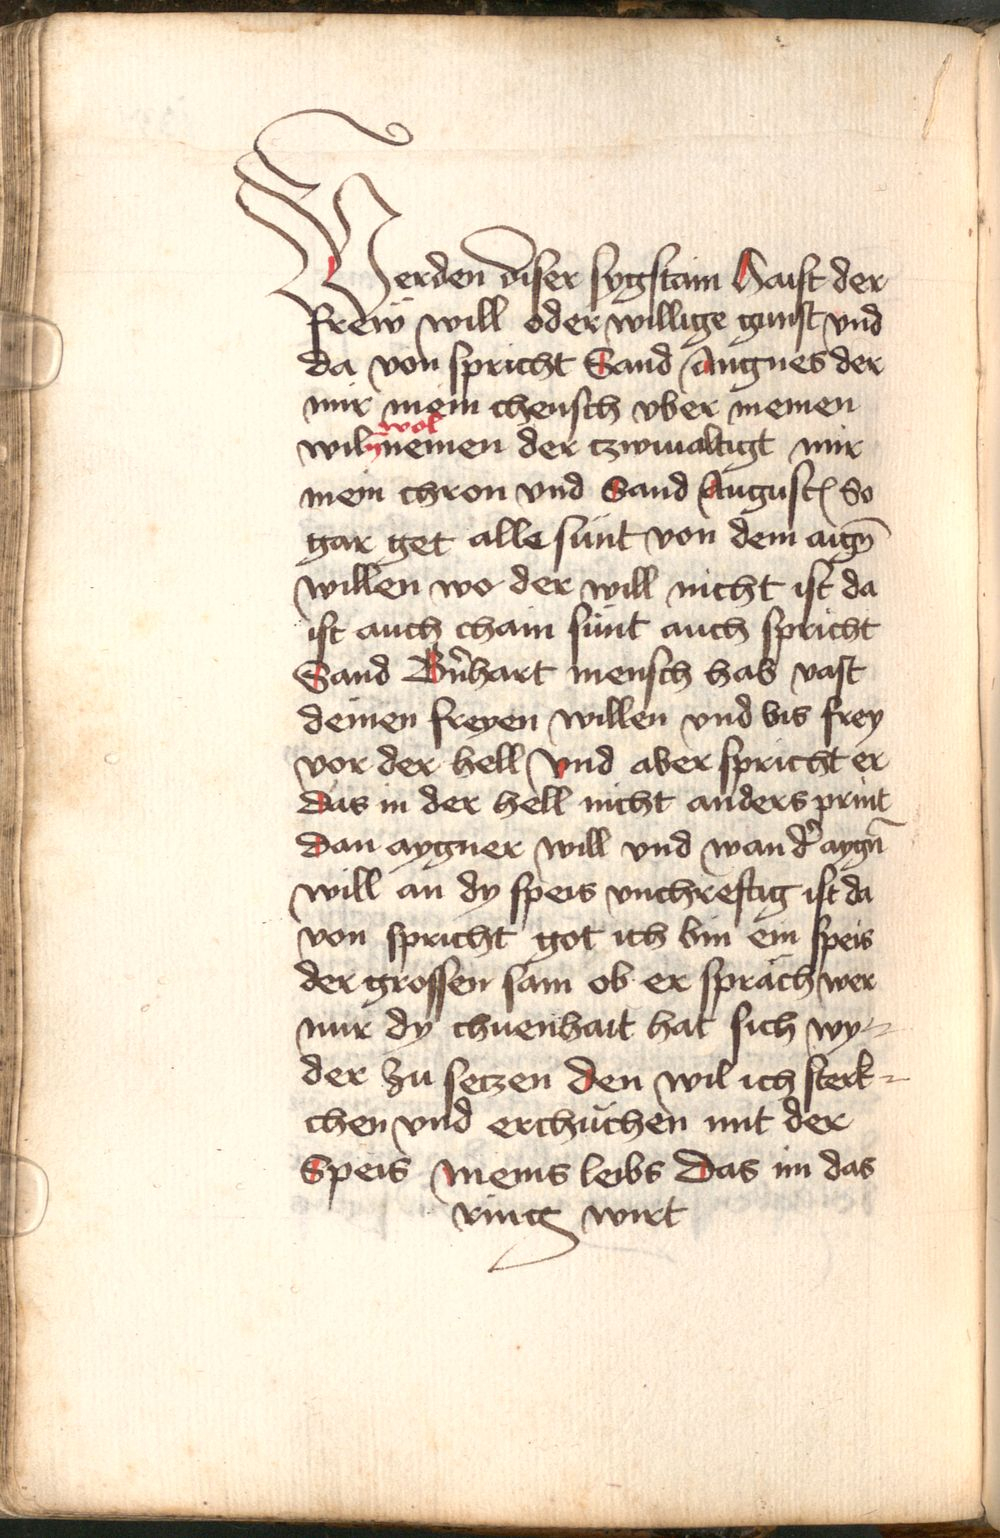 Werden diser sygstain Haist der
freẅ will oder willige gunst vnd
da von spricht Sand Angnes der
mir mein cheusch vber meinen
wil wol nemen der czwiualtigt mir
mein chron vnd Sand August So
gar get alle sünt von dem aign̄
willen wo der will nicht ist da
ist auch chain sünt auch spricht
Sand Bn̄hart mensch hab vast
deinen freyen willen vnd bis frey
vor der hell Vnd aber spricht er
Das in der hell nicht anders print
Dan aygner will vnd wan dr̄ aygn̄
will an dy speis vnchreftig ist da
von spricht got ich bin ein speis
der grossen sam ob er spräch wer
nur dy chuenhait hat sich wy=
der zu seczen den wil ich sterk=
chen vnd erchüchen mit der
Speis meins leibs Das im das
ring wirt